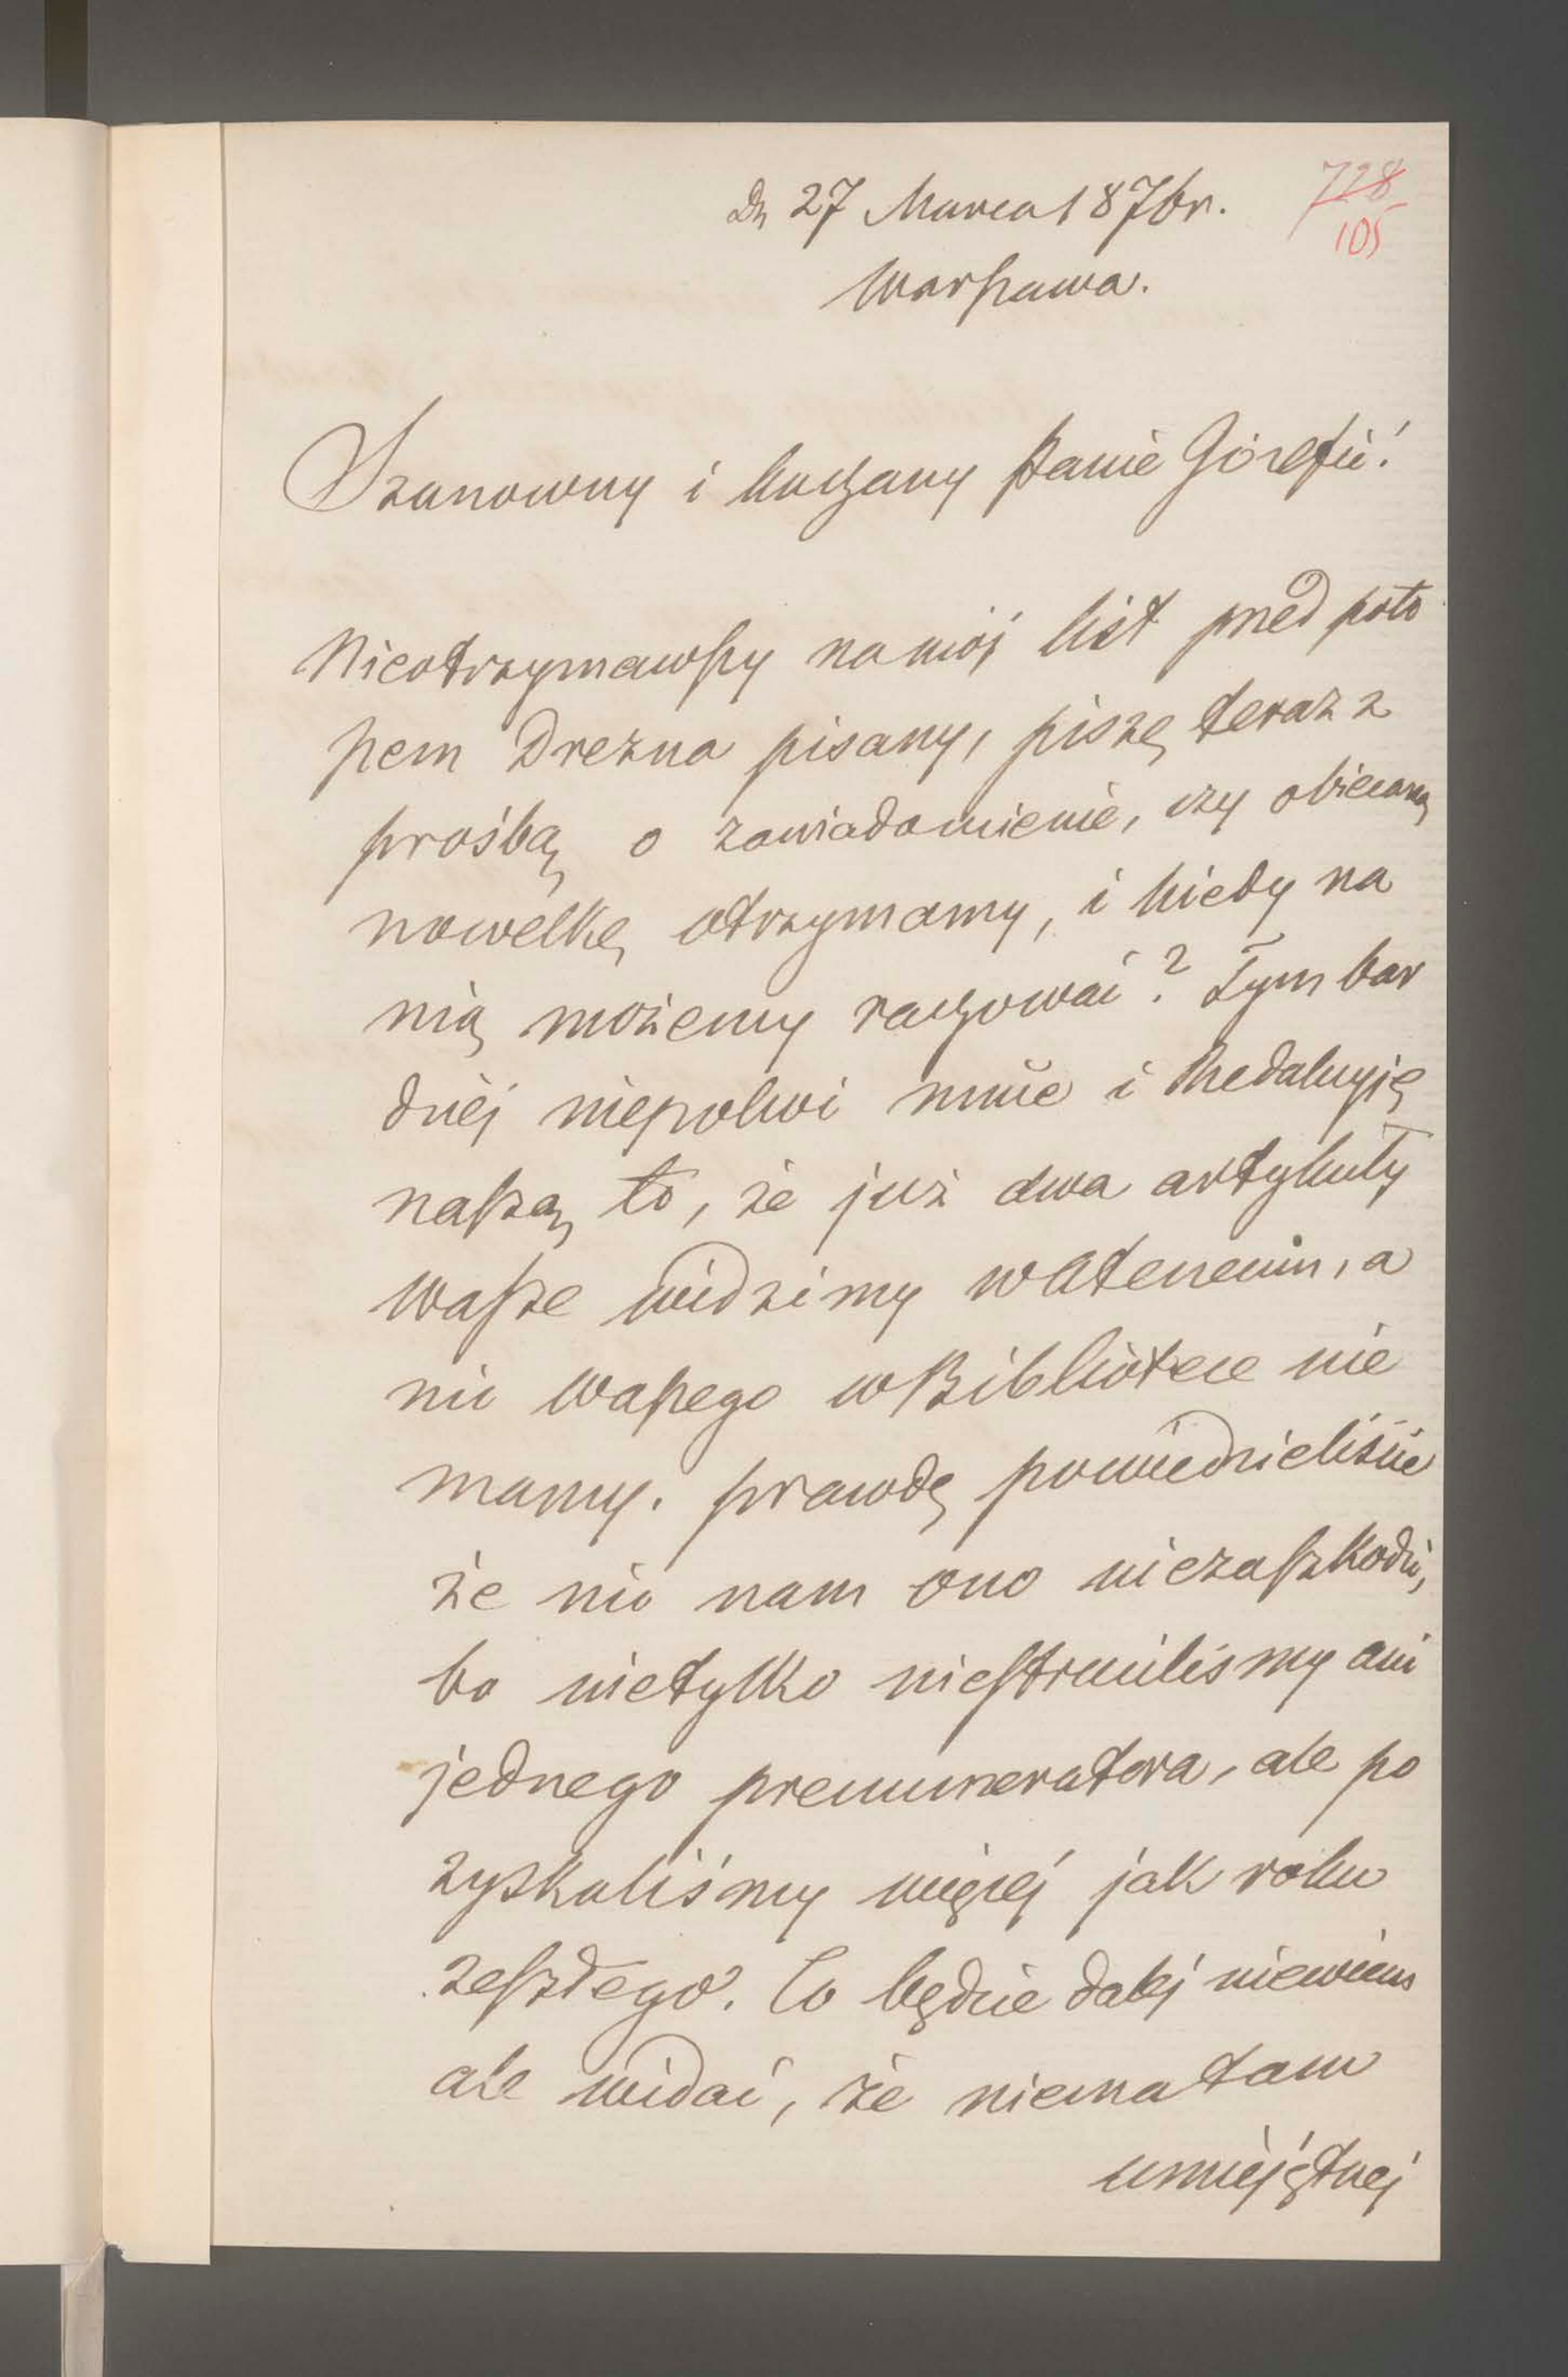 Dn 27 Marca 1876 r.
728
105
Warszawa.
Szanowny i kochany Panie Józefie!
Nieotrzymawszy na mój list przed poto
pem Drezna pisany, piszę teraz z
prośbą o zawiadomienie, czy obiecaną
nowelkę otrzymamy, i kiedy na
nią możemy rachować? Tym bar
dziéj niepokoi mnie i Redakcyję
naszą to, że już dwa artykuły
wasze widzimy w Ateneum, a
nic waszego w Bibliotece nie
mamy. Prawdę powiedzieliście
że nic nam ono niezaszkodzi,
bo nietylko niestraciliśmy ani
jednego prenumeratora, ale po
zyskaliśmy więcéj jak roku
zeszłego. Co będzie daléj niewiem
ale widać, że niema tam
umiejętnéj